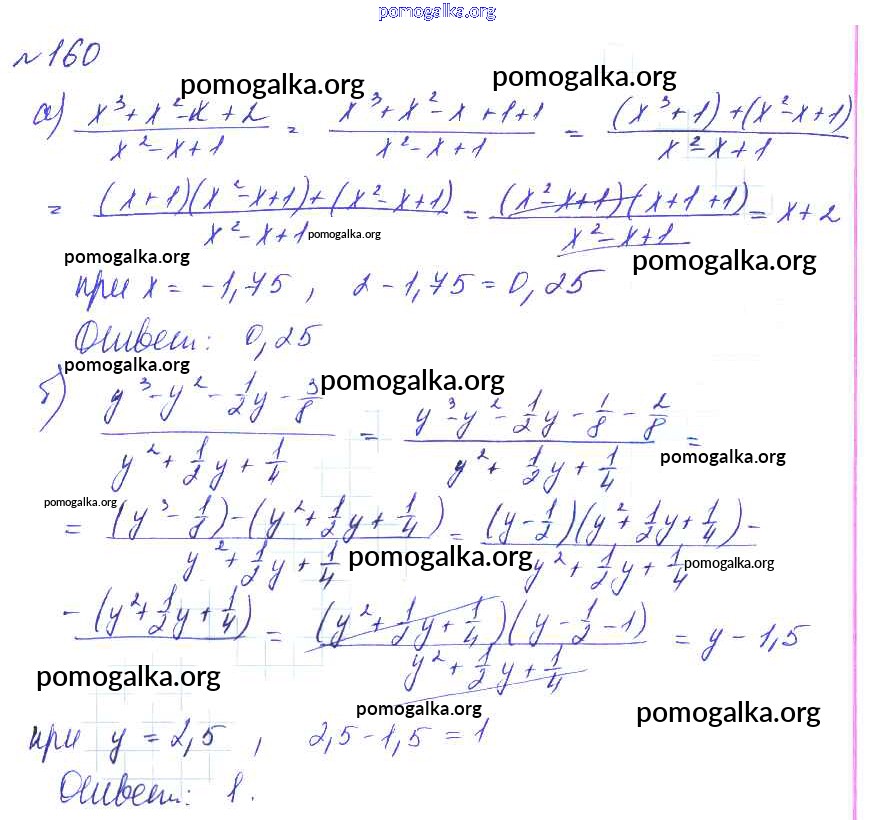 pomogalka.org
№160
pomogalka.org pomogalka.org
а) (x³+x²-x+2)/(x²-x+1) = (x³+x²-x+1+1)/(x²-x+1) = ((x³+1)+(x²-x+1))/(x²-x+1)
= ((x+1)(x²-x+1)+(x²-x+1))/(x²-x+1) = ((x²-x+1)(x+1+1))/(x²-x+1) = x+2
pomogalka.org
pomogalka.org pomogalka.org
при x = -1,75, 2-1,75=0,25
Ответ: 0,25
pomogalka.org pomogalka.org
б) (y³-y²-1/2y-3/8)/(y²+1/2y+1/4) = (y³-y²-1/2y-1/8-2/8)/(y²+1/2y+1/4) =
pomogalka.org
pomogalka.org
= ((y³-1/8)-(y²+1/2y+1/4))/(y²+1/2y+1/4) = ((y-1/2)(y²+1/2y+1/4)-)/(y²+1/2y+1/4)
pomogalka.org pomogalka.org
-(y²+1/2y+1/4) = ((y²+1/2y+1/4)(y-1/2-1))/(y²+1/2y+1/4) = y-1,5
pomogalka.org
pomogalka.org pomogalka.org
при y = 2,5, 2,5-1,5=1
Ответ: 1.